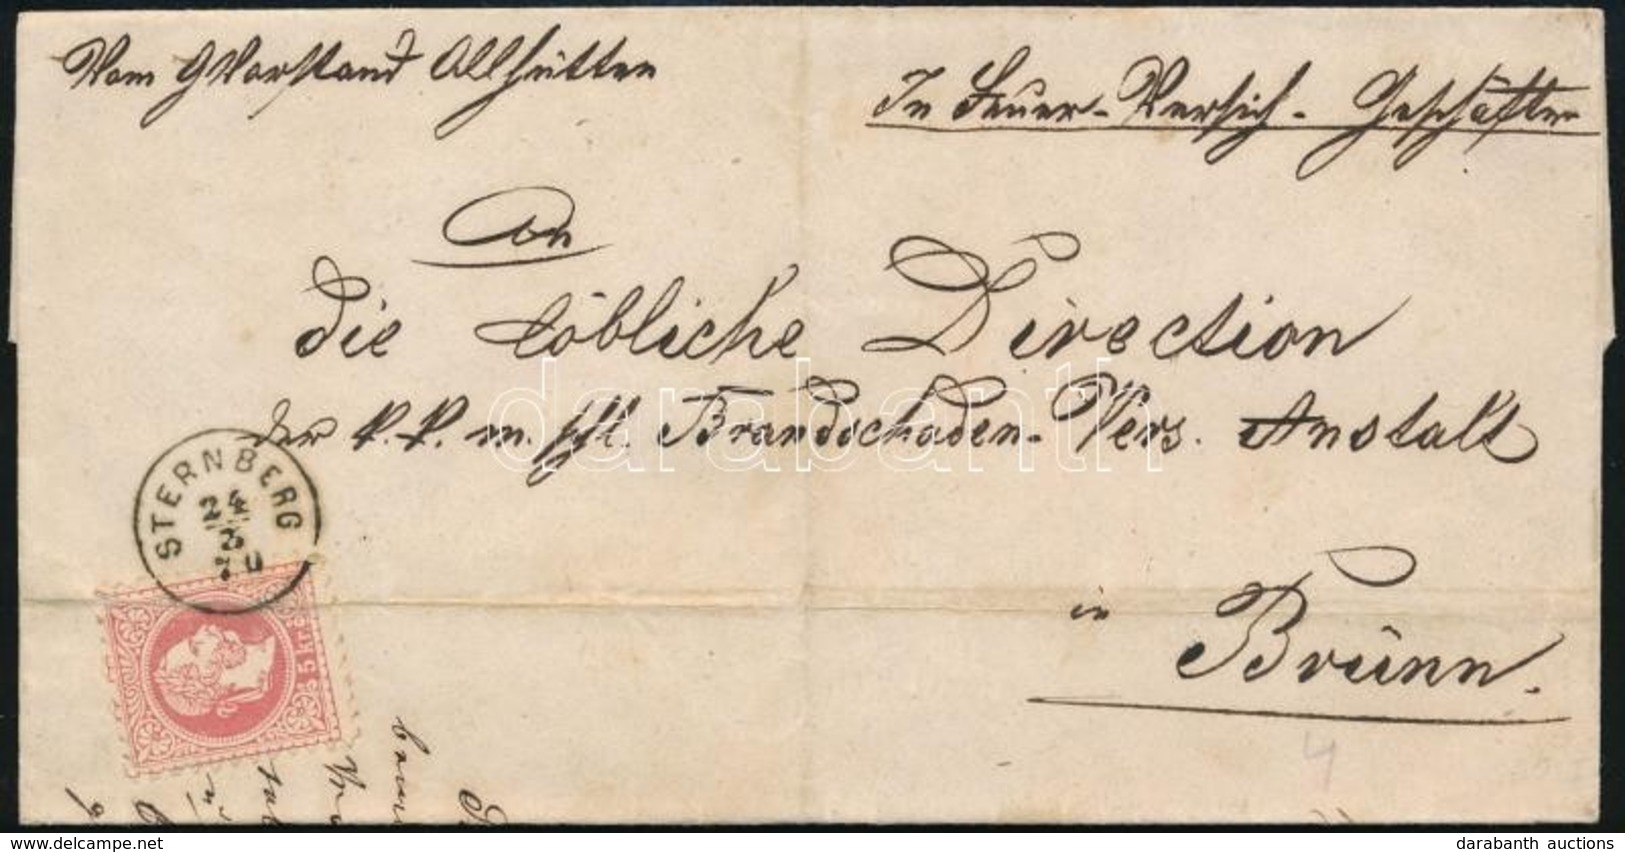 Vom GVorstand Allhütten
In Feuer-Versich- Geschäften
An
die löbliche Direction
der k. k. m. schl. Brandschaden-Vers. Anstalt
in
Brünn.
STERNBERG
24
3
70
5 kr
darabanth
4
darabanth auctions